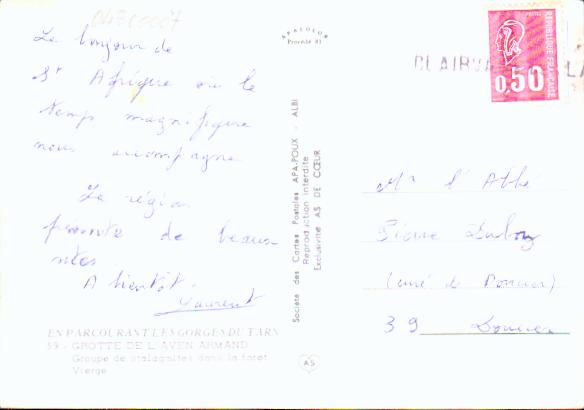 04800007
Le bonjour de
St Afrique où le
temps magnifique
nous accompagne
La région
présente de beaux
sites
A bientôt.
Laurent
EN PARCOURANT LES GORGES DU TARN
59 - GROTTE DE L'AVEN ARMAND
Groupe de stalagmites dans la forêt
Vierge
APACOLOR
Procédé 41
Société des Cartes Postales APA-POUX - ALBI
Reproduction interdite
Exclusivité AS DE CŒUR
AS
CLAIRVA
RÉPUBLIQUE FRANÇAISE
POSTES
0,50
Mr l'Abbé
Pierre
(curé de
39